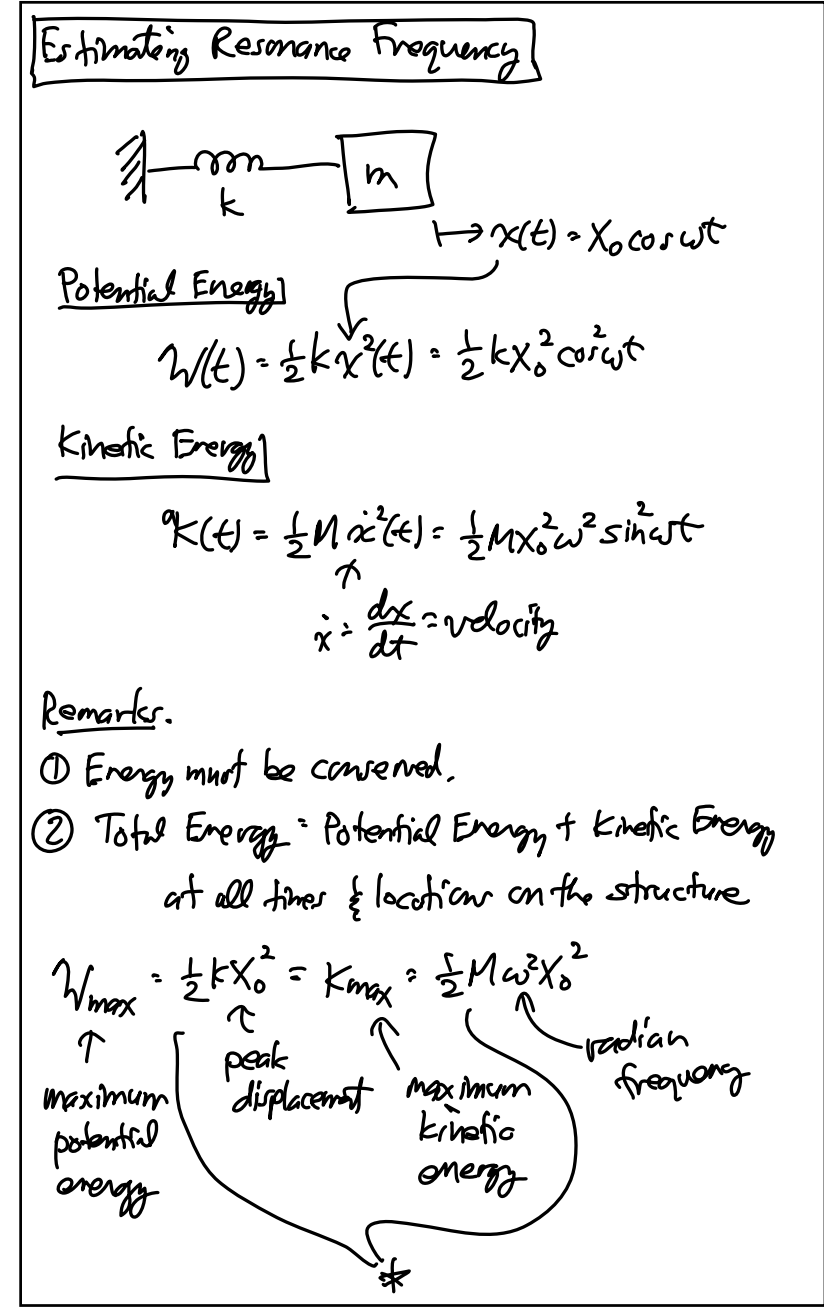 Estimating Resonance Frequency
k
m
x(t) = X₀ cos ωt
Potential Energy
W(t) = ½ k x²(t) = ½ k X₀² cos² ωt
Kinetic Energy
K(t) = ½ M ẋ²(t) = ½ M X₀² ω² sin² ωt
ẋ = dx/dt = velocity
Remarks.
① Energy must be conserved.
② Total Energy = Potential Energy + Kinetic Energy
at all times & locations on the structure
W_max = ½ k X₀² = K_max = ½ M ω² X₀²
maximum potential energy
peak displacement
maximum kinetic energy
radian frequency
*